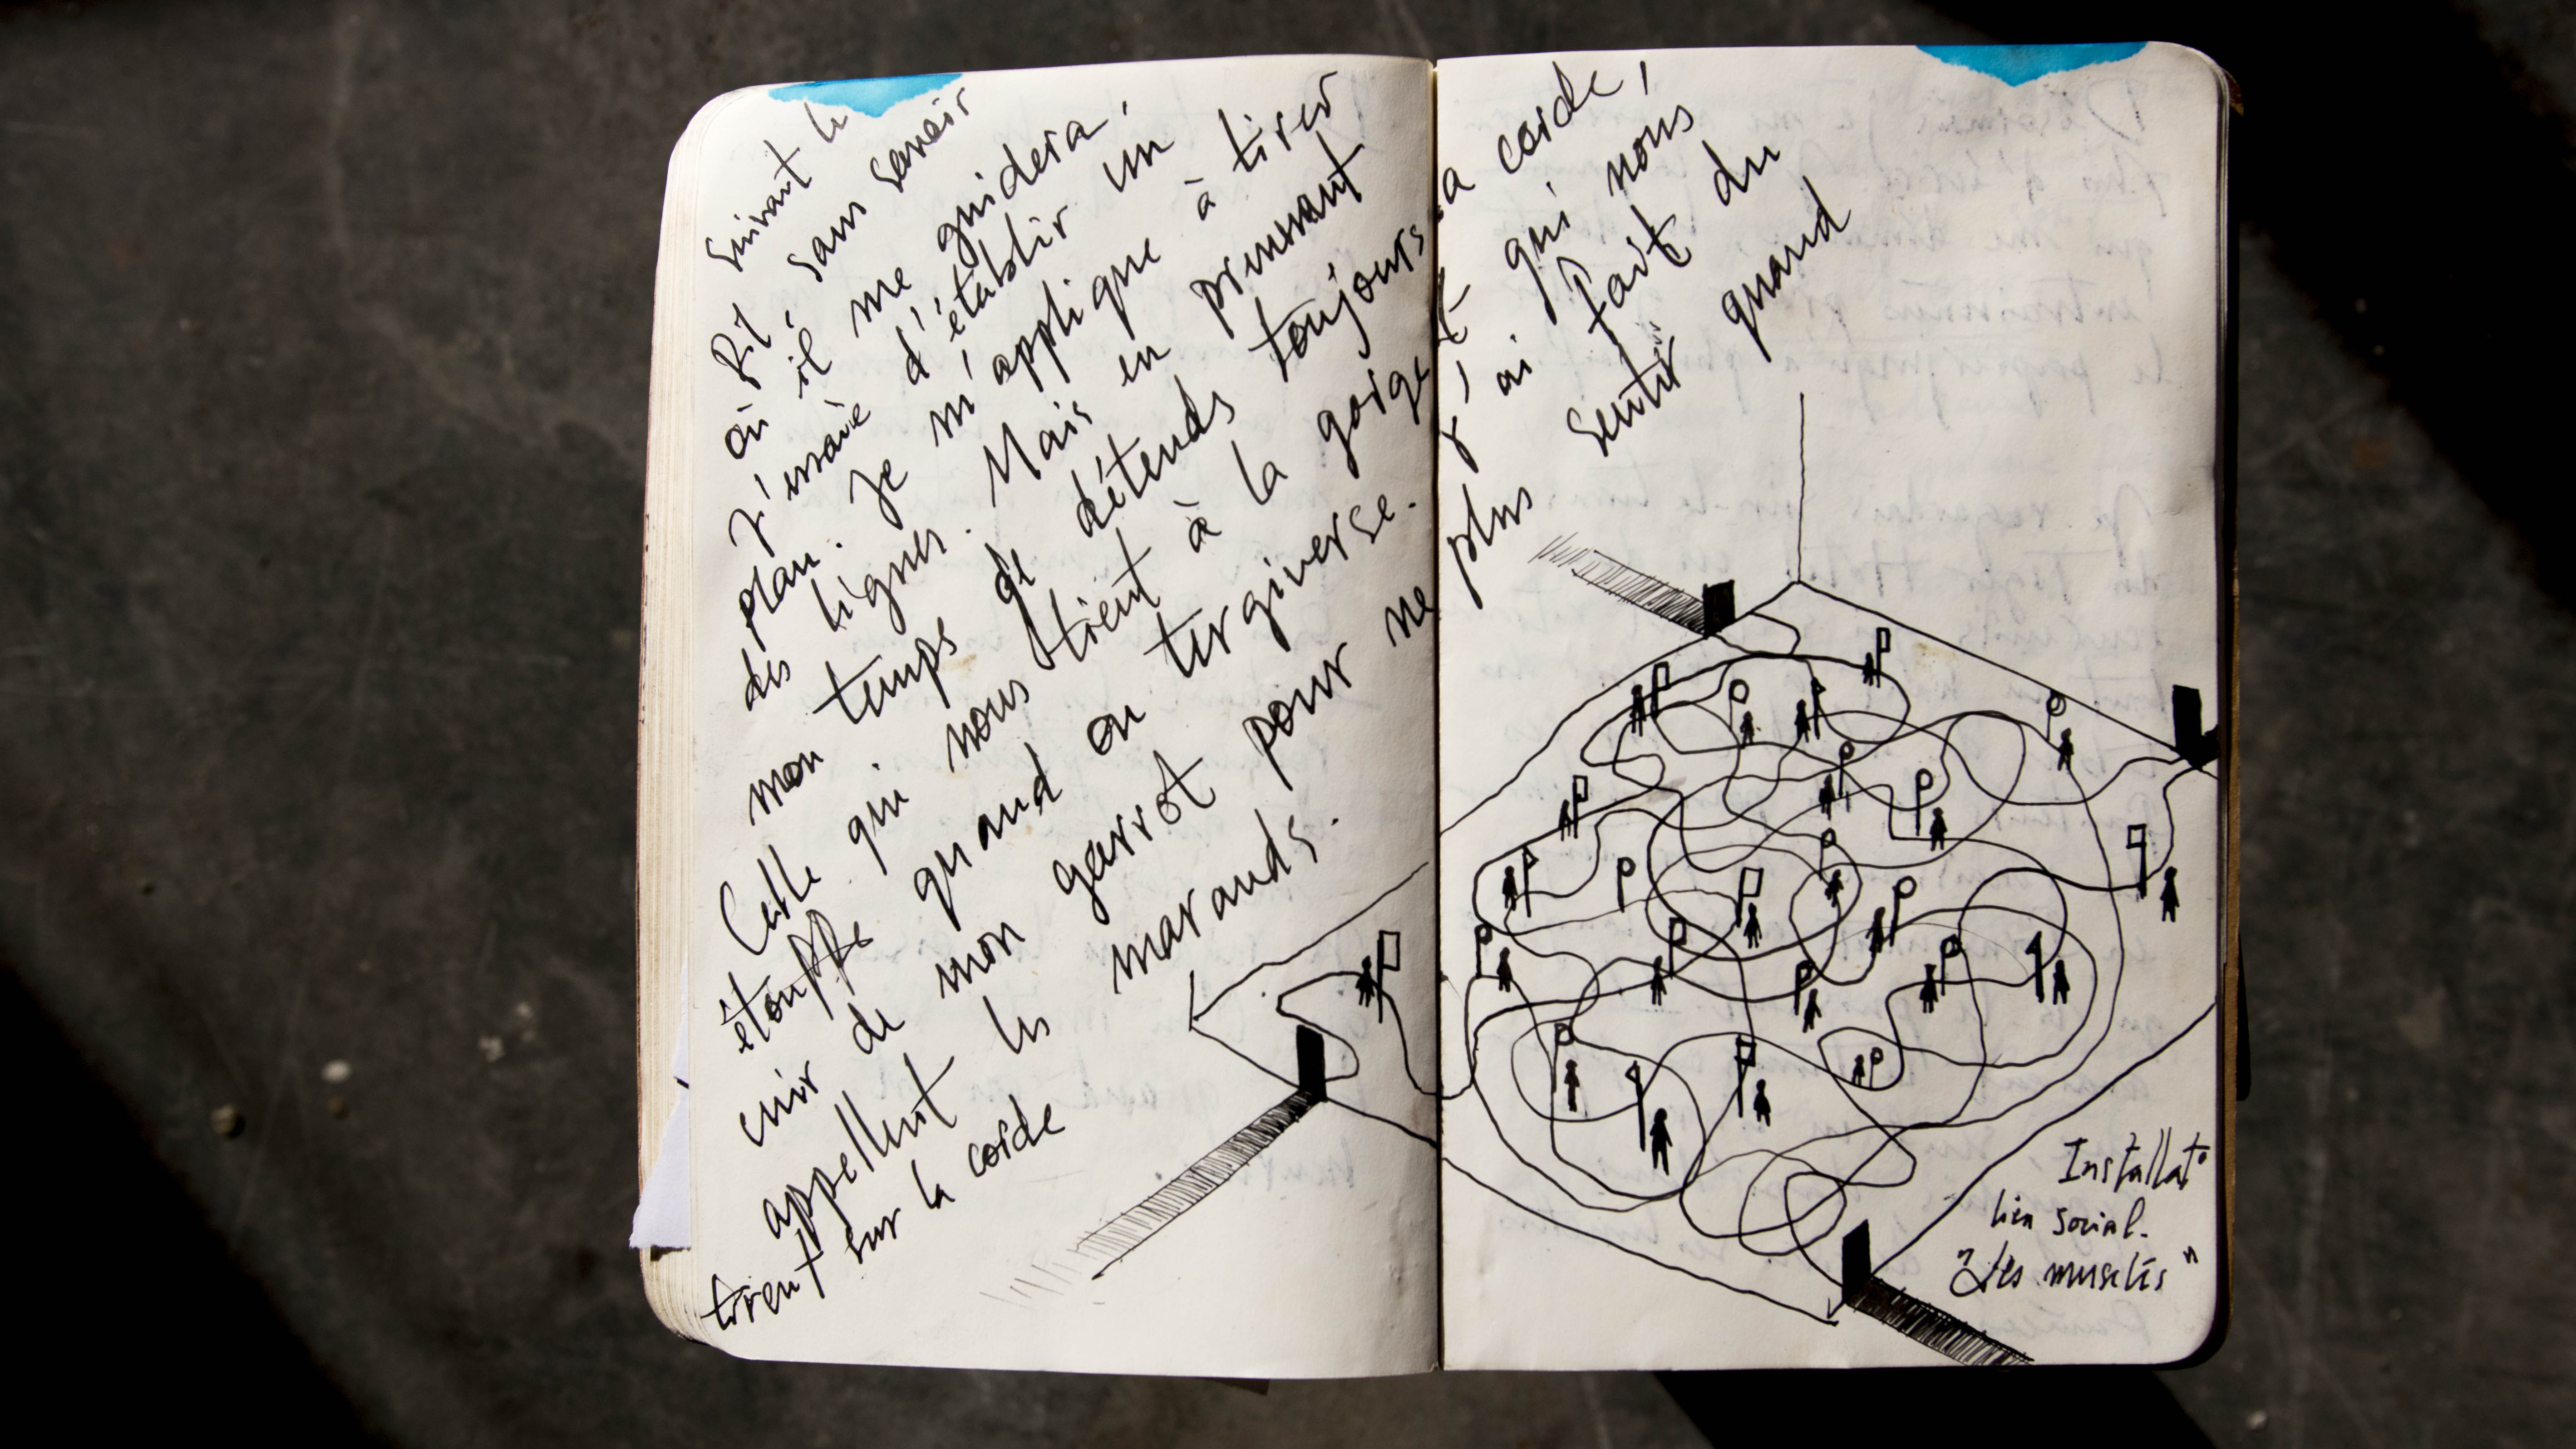 Suivant le
fil, sans savoir
où il me guidera,
j'essaie d'établir un
plan. Je m'applique à tirer
des lignes. Mais en prenant
mon temps je détends toujours la corde,
Celle qui nous tient à la gorge et qui nous
étouffe quand on tergiverse. J'ai fait du
cuir de mon garrot pour ne plus sentir quand
appellent les marauds.
tirent sur la corde
Installat°
lien social.
"Les muselés"